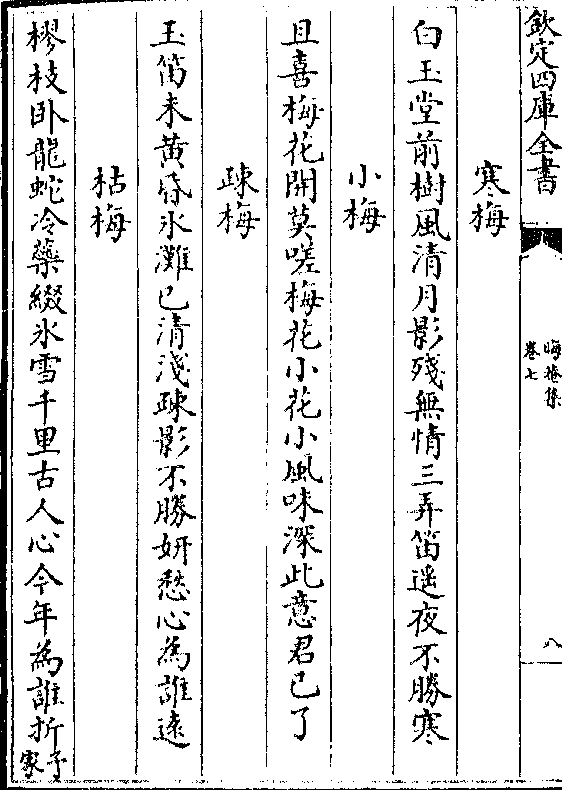 欽定四庫全書
晦菴集
卷七
八
寒梅
白玉堂前樹風清月影殘無情三弄笛遥夜不勝寒
小梅
且喜梅花開莫嗟梅花小花小風味深此意君已了
疎梅
玉笛来黄昏氷灘已清淺疎影不勝妍愁心為誰遠
枯梅
樛枝卧龍蛇冷蘂綴氷雪千里古人心今年為誰折予家